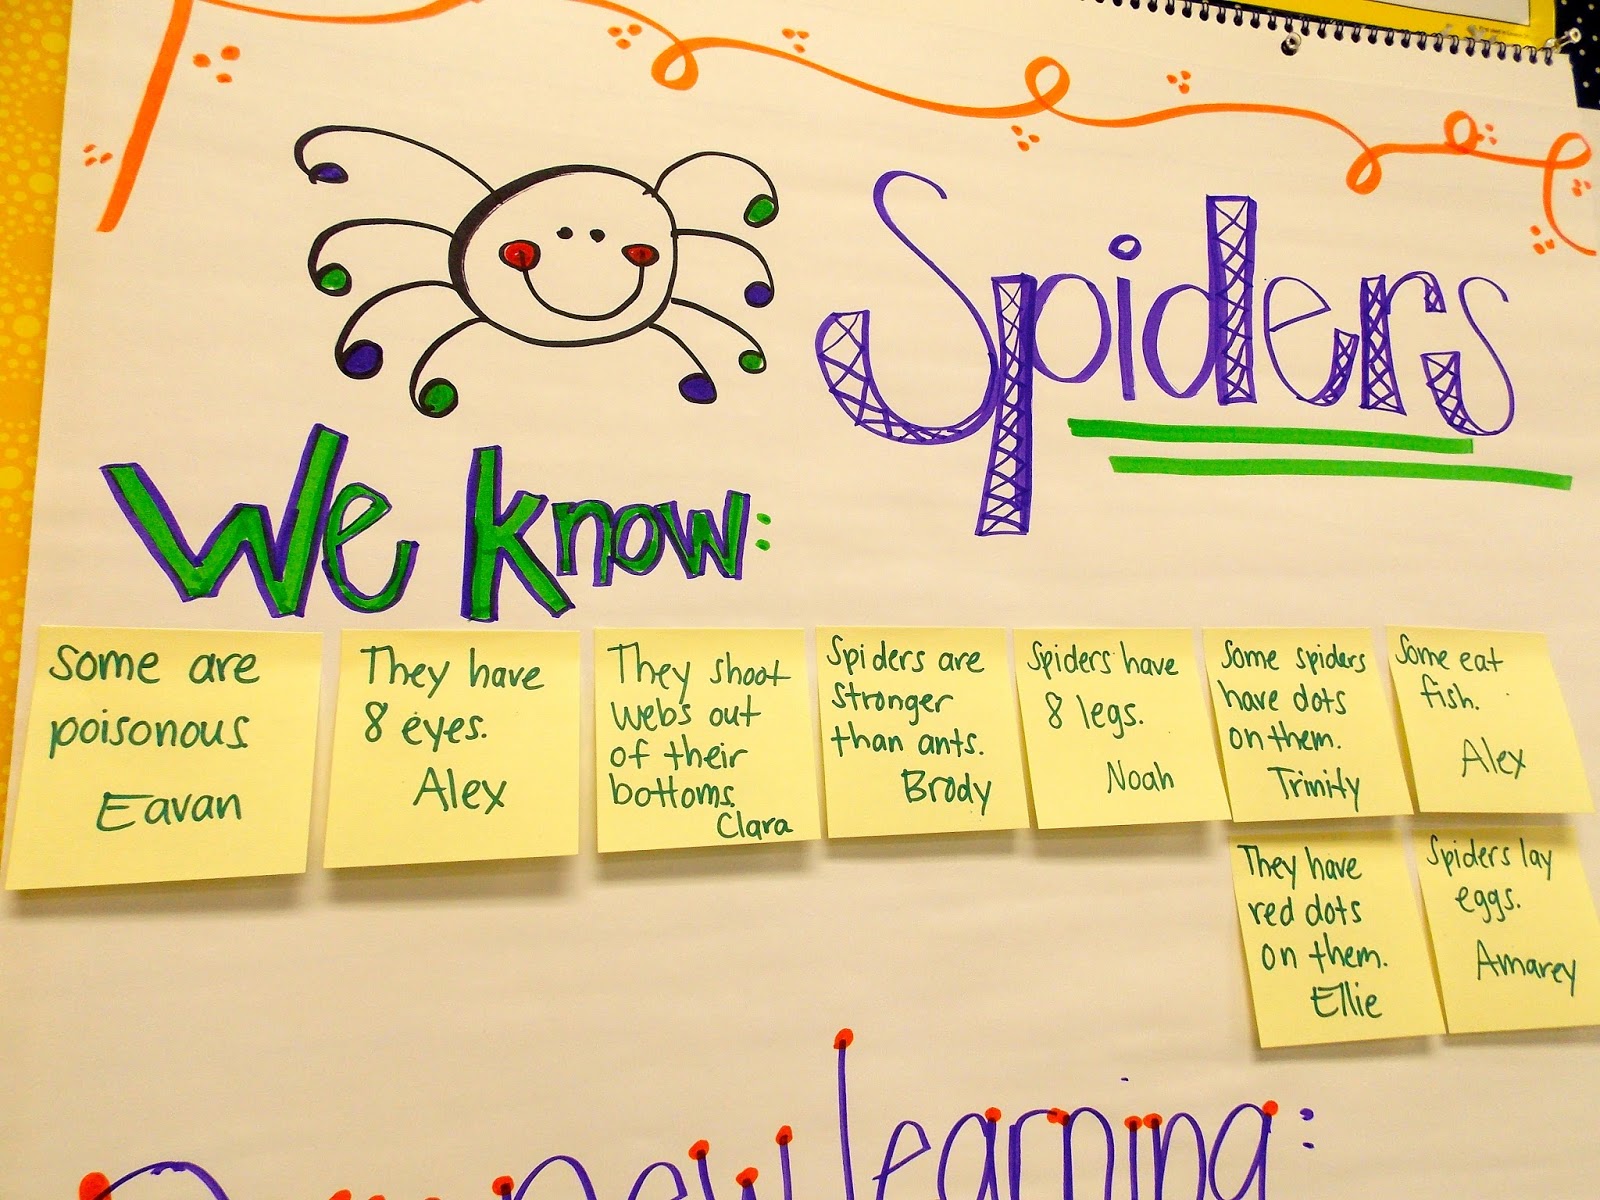 Spiders
We know:
Some are
poisonous
Eavan
They have
8 eyes.
Alex
They shoot
webs out
of their
bottoms.
Clara
Spiders are
stronger
than ants.
Brody
Spiders have
8 legs.
Noah
Some spiders
have dots
on them.
Trinity
Some eat
fish.
Alex
They have
red dots
on them.
Ellie
Spiders lay
eggs.
Amarey
new learning: